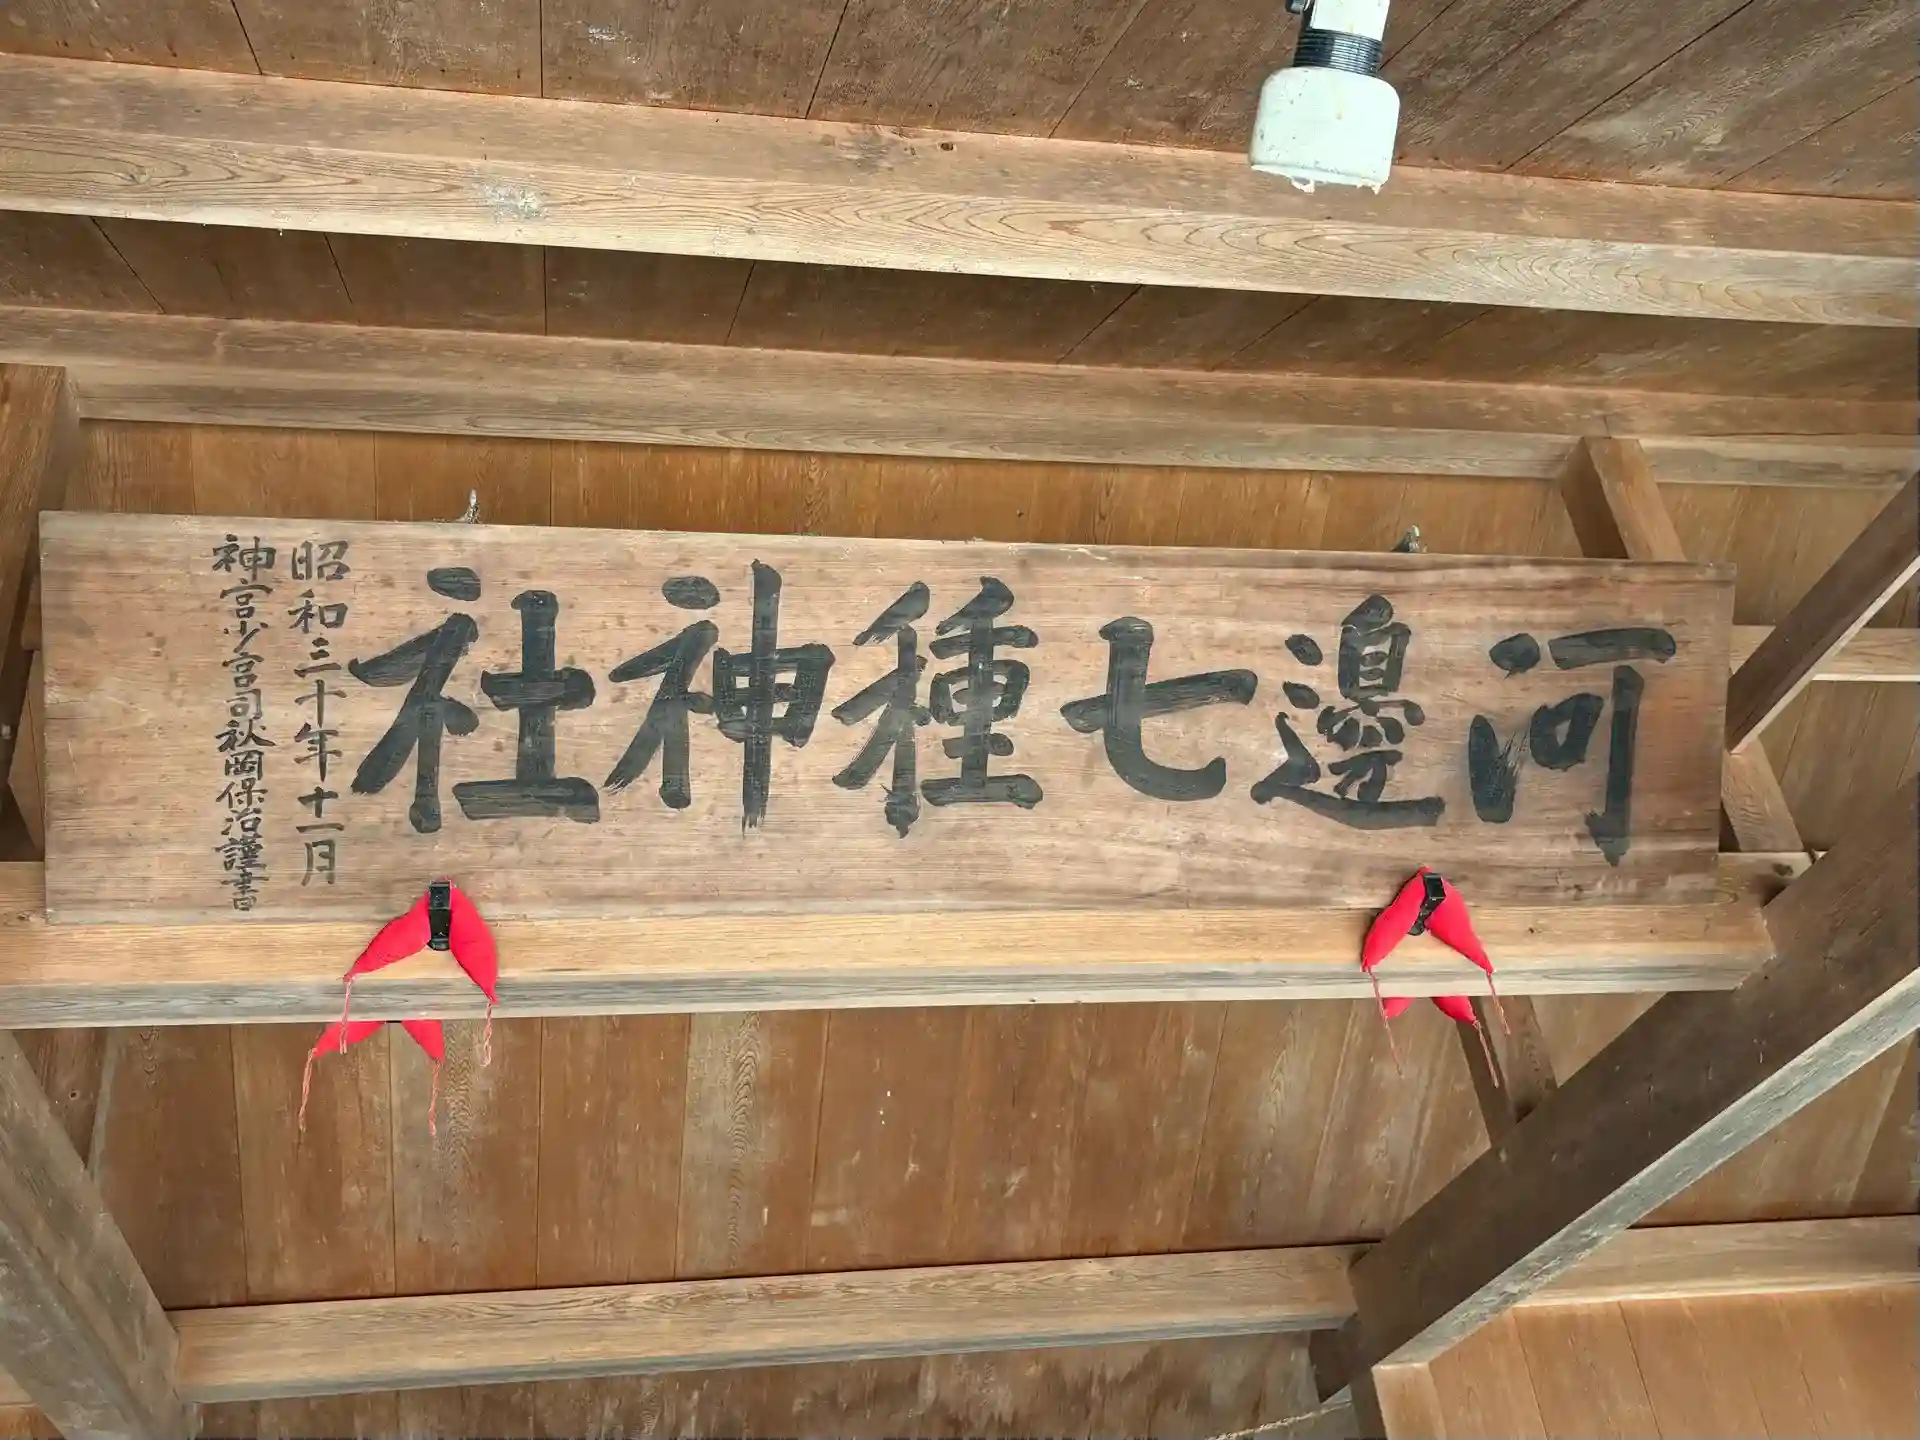 河邊七種神社
昭和三十年十一月
神宮少宮司秋岡保治謹書